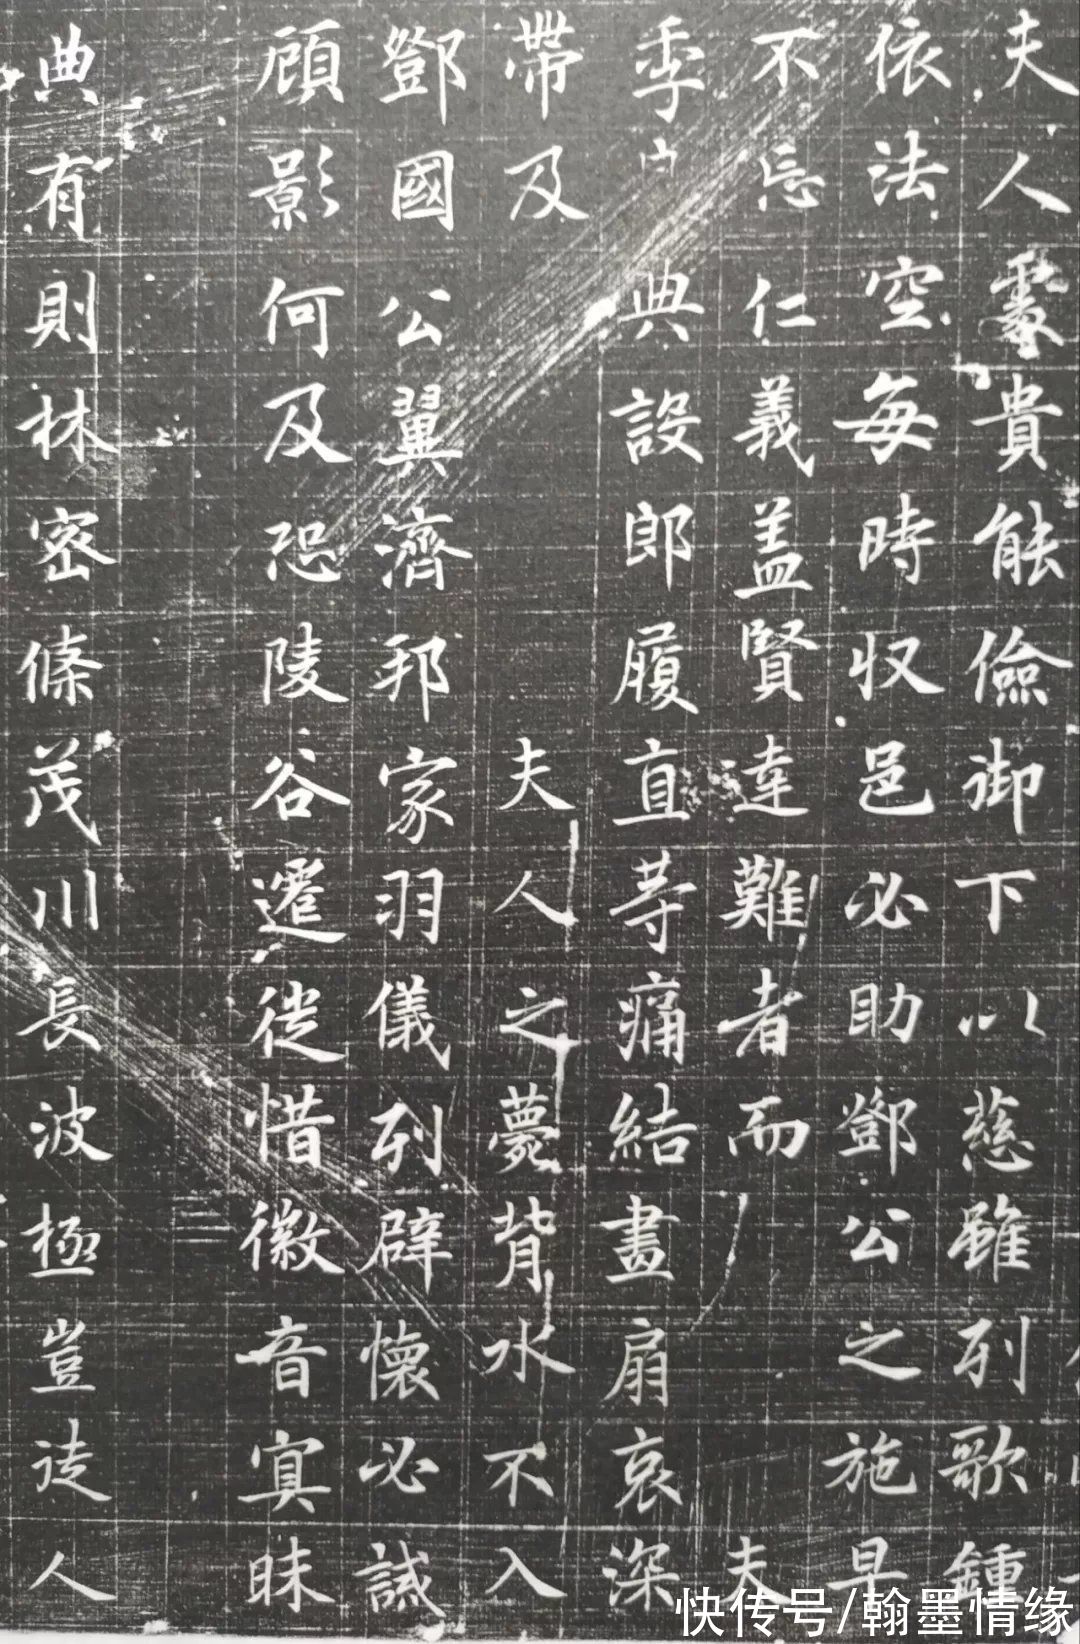 夫人處貴能儉御下以慈雖列歌鍾
依法空每時収邑必助鄧公之施早
不忘仁義盖賢達難者而夫
季典設郎履直䓁痛結畫扇哀深
帶及夫人之薨背水不入
鄧國公翼濟邦家羽儀列辟懷必誠
顧影何及恐陵谷遷徙惜徽音寘昧
典有則林密條茂川長波極豈徒人
快传号/翰墨情缘